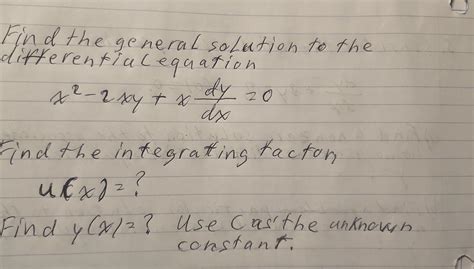 Find the general solution to the
differential equation
x² - 2xy + x dy/dx = 0
Find the integrating factor
u(x) = ?
Find y(x) = ? Use C as the unknown
constant.